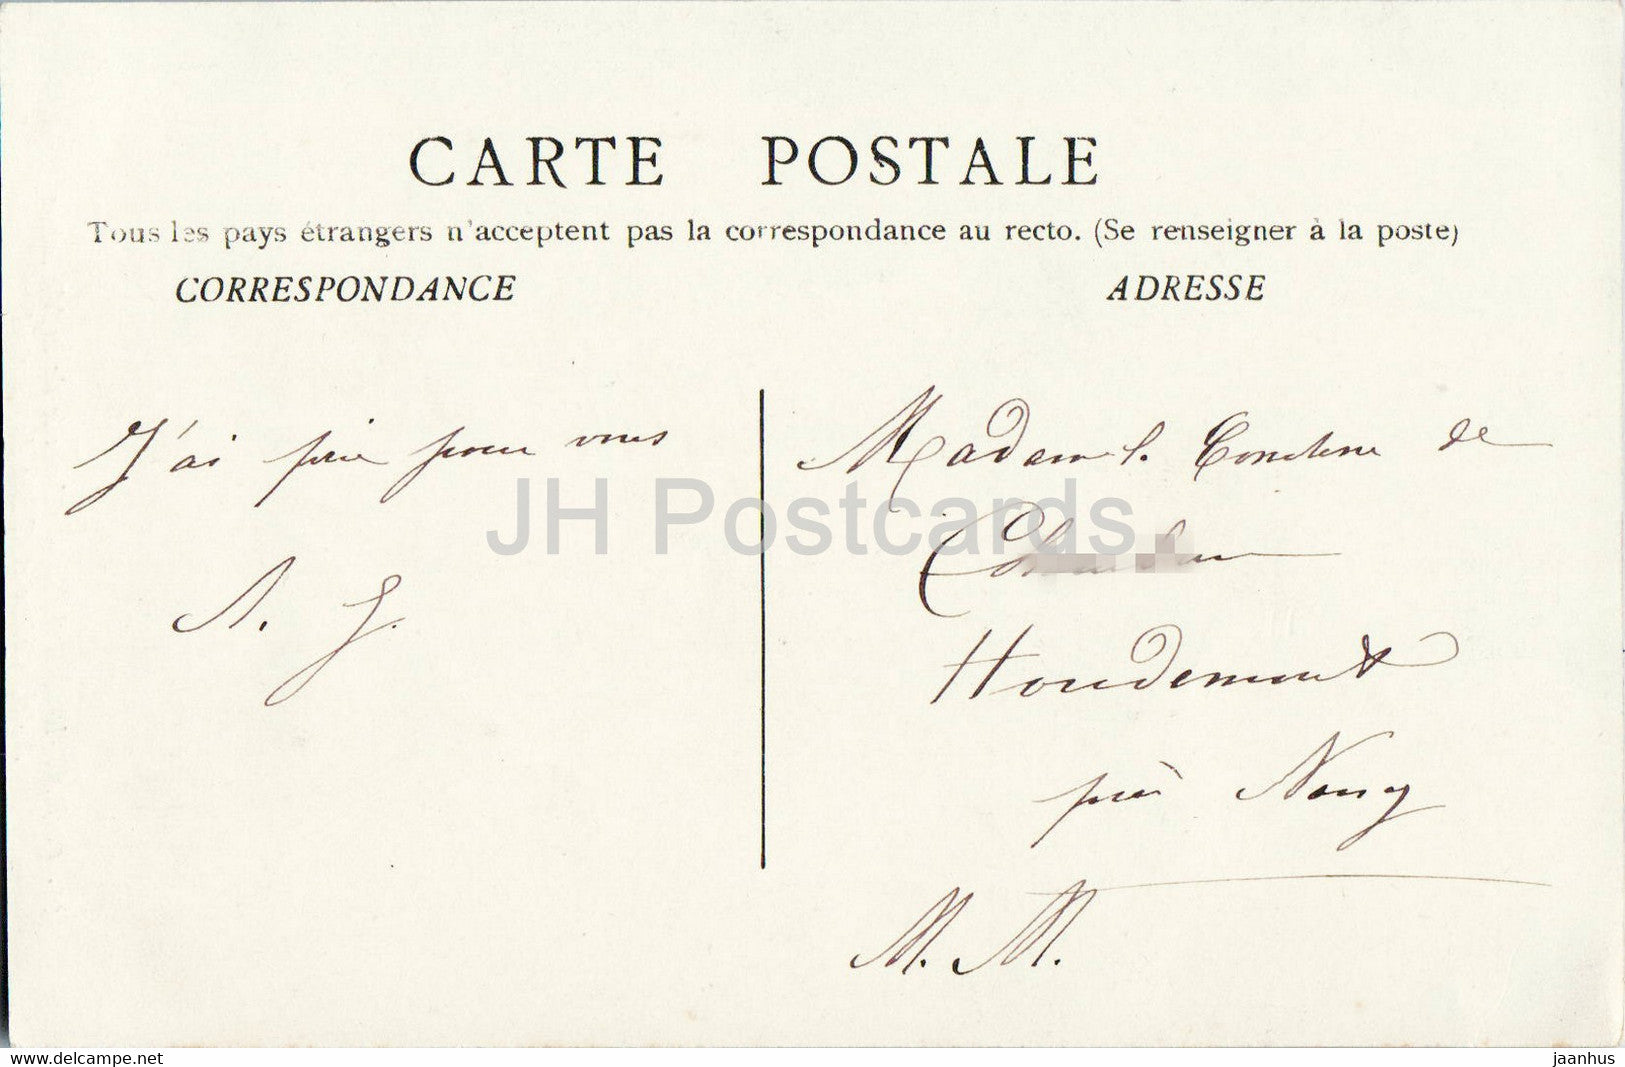 CARTE POSTALE
Tous les pays étrangers n'acceptent pas la correspondance au recto. (Se renseigner à la poste)
CORRESPONDANCE
ADRESSE
J'ai prié pour vous
A. G.
Madame l. Comtesse de
Houdemont
près Nancy
M. M.
JH Postcards
www.delcampe.net
jaanhus